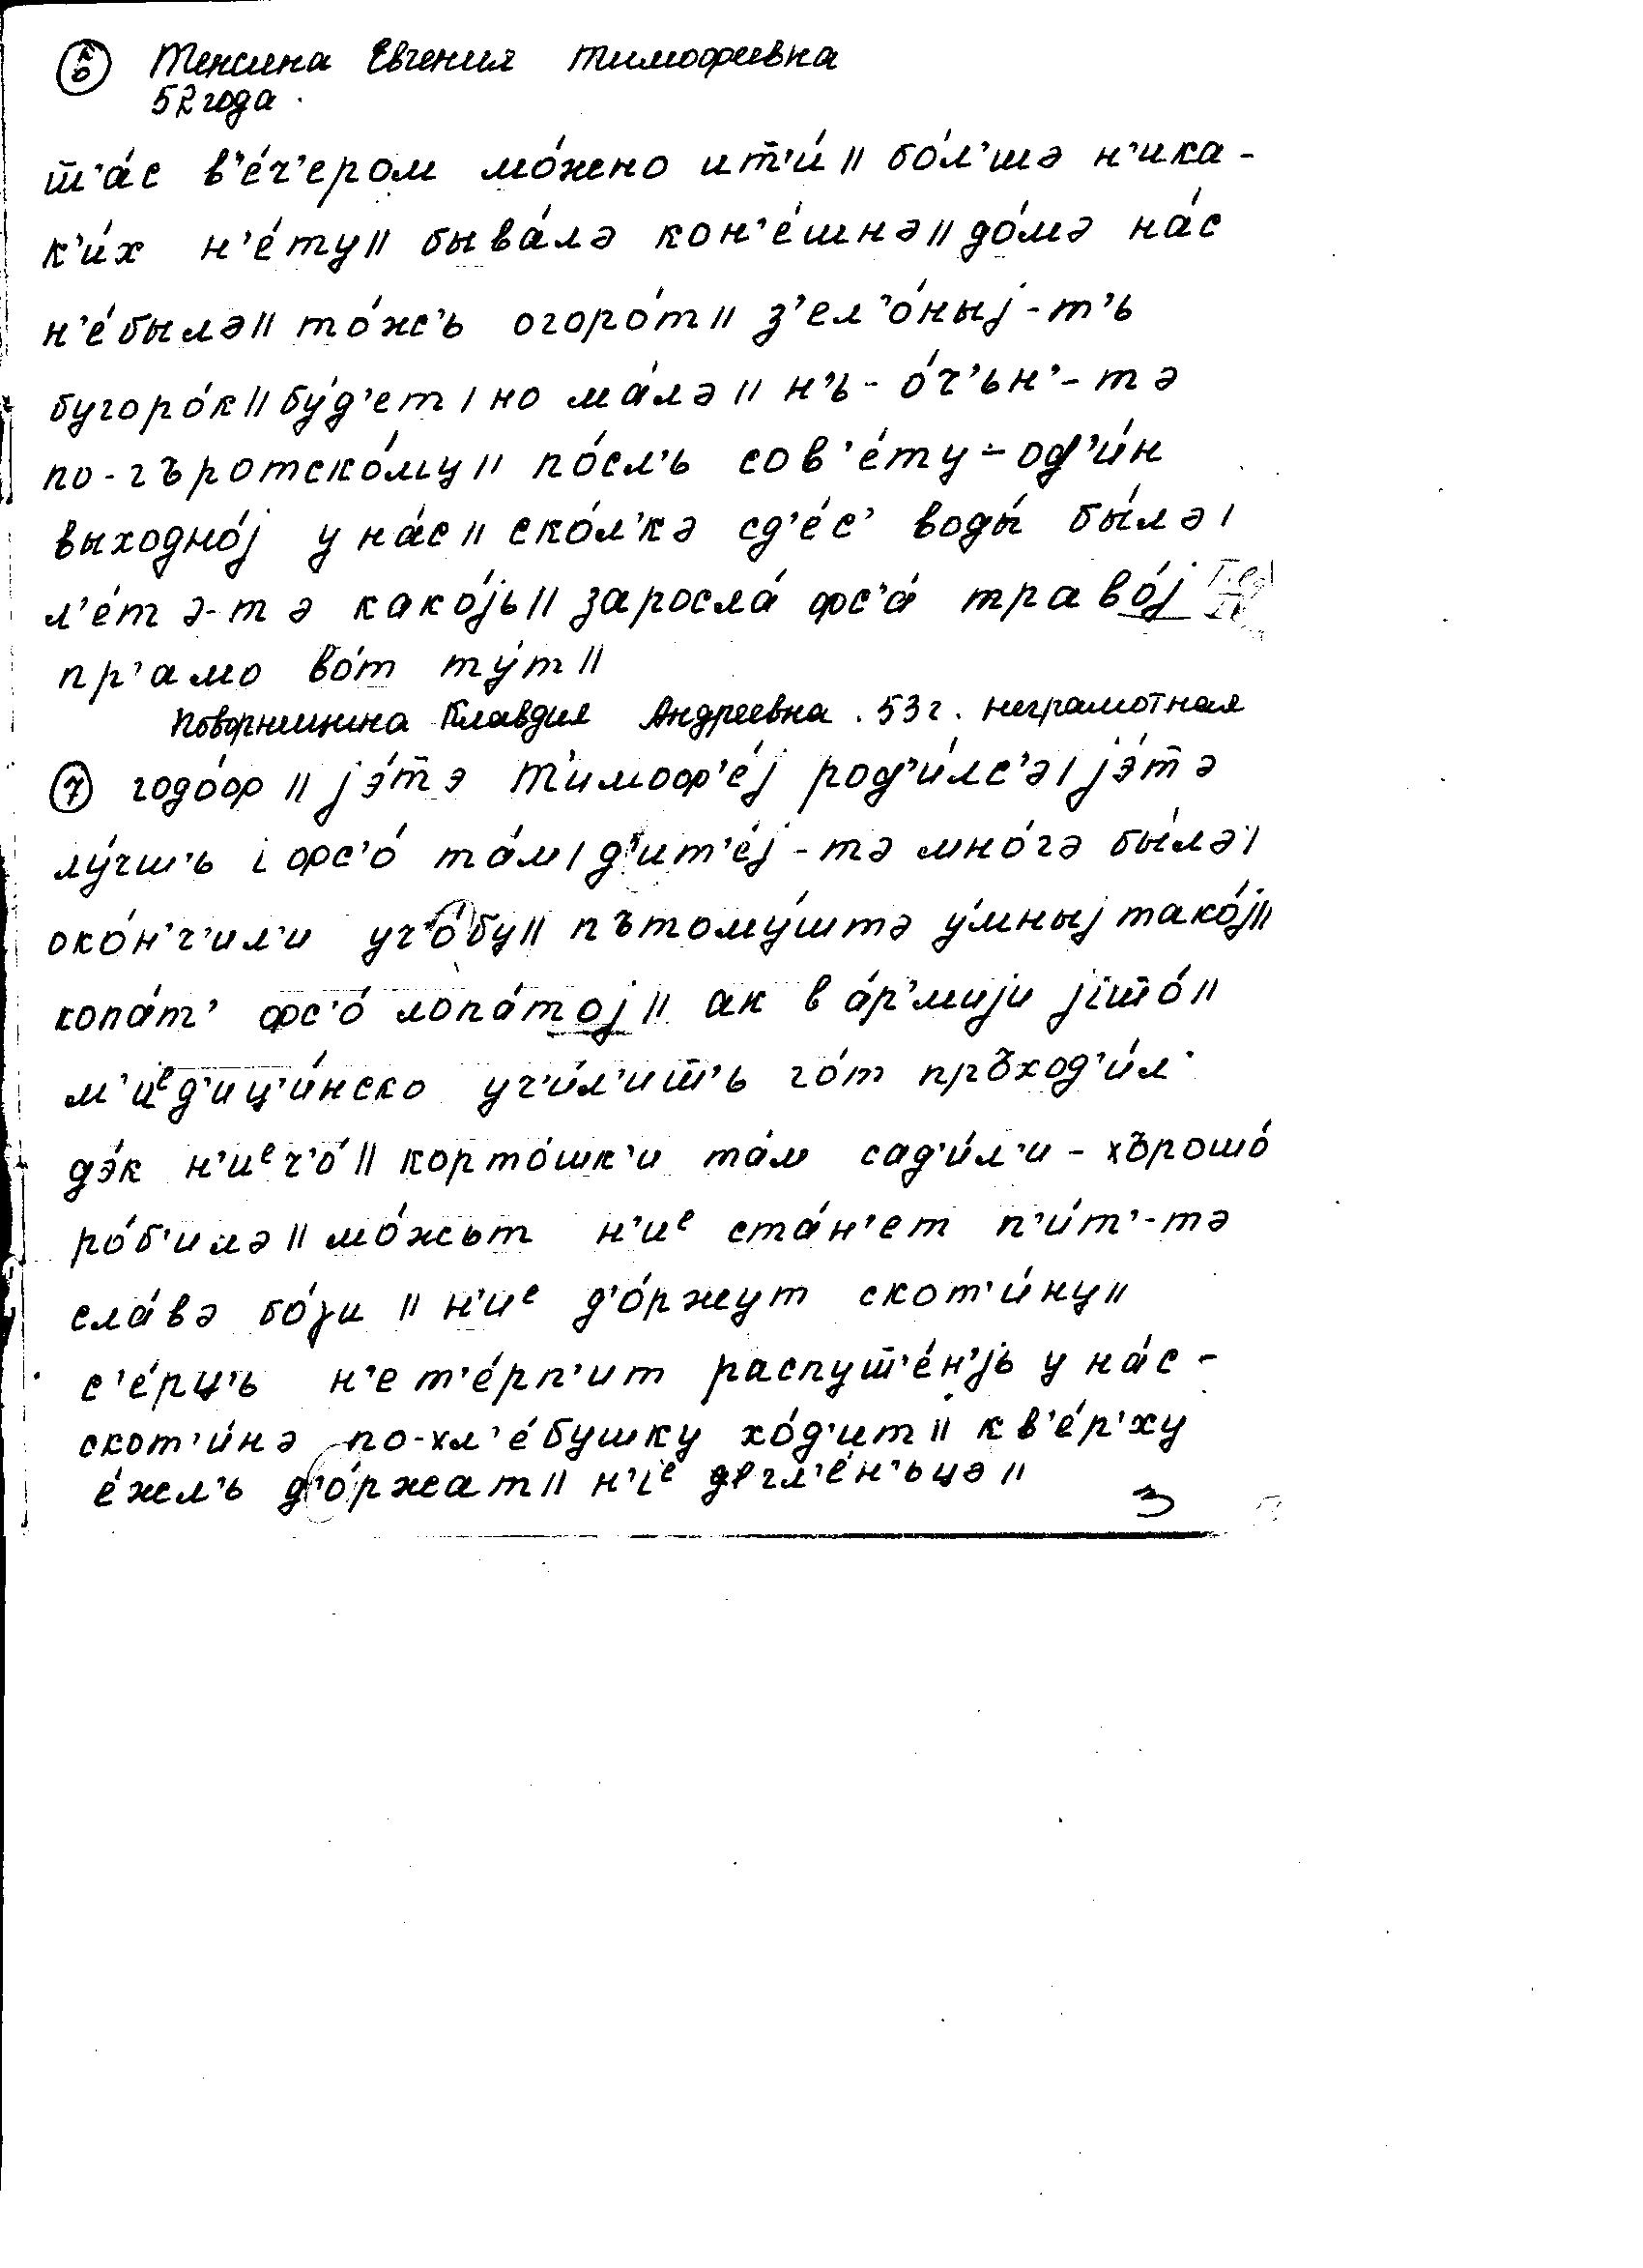 6 Тенсина Евгения Тимофеевна
52 года.
ш̄'а́с в'е́ч'ером мо́жено ит̄'и́ || бо́л'шə н'ика-
к'и́х н'е́ту || быва́лə кон'е́шнə || до́мə на́с
н'е́былə || то́ж'ь огоро́т || з'ел'о́ныј-т'ь
бугоро́к || бу́д'ет | но ма́лə || н'ь-о́ч'ьн'-тə
по-гъротско́му || по́сл'ь сов'е́ту - од'и́н
выходно́ј у на́с || ско́л'кə сд'е́с' воды́ бы́лə |
л'е́тə-тə како́јь || заросла́ фс'а́ траво́ј
пр'амо во́т ту́т ||
Поворницина Клавдия Андреевна. 53 г. неграмотная
7 годо́ф || јэ́т̄э Т'имоф'е́ј род'и́лс'ə | јэ́т̄ə
лу́чш'ь і фс'о́ та́м | д'ит'е́ј-тə мно́гə бы́лə |
око́н'ч'ил'и уч'о́бу || пътому́штə у́мныј тако́ј ||
копа́т' фс'о́ лопа́тој || ак в а́р'мији јіш̄о́ ||
м'иᵉд'иц'и́нско уч'и́л'иш̄'ь го́т пръход'и́л
дэ́к н'иᵉч'о́ || корто́шк'и та́м сад'и́л'и - хърошо́
ро́б'илə || мо́жьт н'иᵉ ста́н'ет п'и́т'-тə
сла́вə бо́γи || н'иᵉ д'о́ржут скот'и́ну ||
с'е́рц'ь н'е т'е́рп'ит распуш̄'е́н'јь у на́с -
скот'и́нə по-хл'е́бушку хо́д'ит || к в'е́р'ху
е́жел'ь д'о́ржат || н'іᵉ дегл'е́н'ьцə ||
3